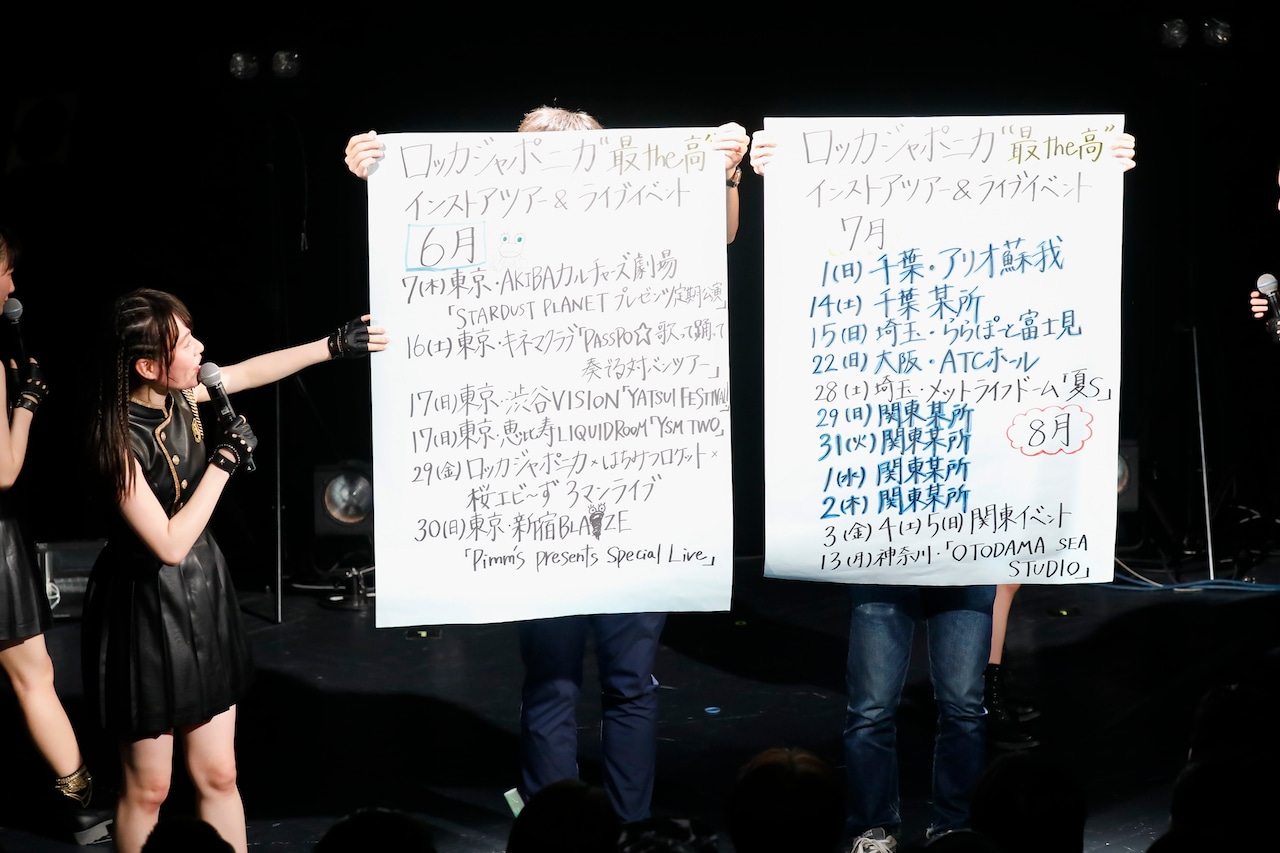 ロッカジャポニカ"最the高"
インストアツアー & ライブイベント
6月
7(木)東京・AKIBAカルチャーズ劇場
「STARDUST PLANETプレゼンツ定期公演」
16(土)東京・キネマクラブ「PASSPO☆歌って踊って
奏でる対バンツアー」
17(日)東京・渋谷VISION「YATSUI FESTIVAL」
17(日)東京・恵比寿LIQUIDROOM「YSM TWO」
29(金)ロッカジャポニカ×はちみつロケット×
桜エビ〜ず 3マンライブ
30(日)東京・新宿BLAZE
「Pimm's presents Special Live」
ロッカジャポニカ"最the高"
インストアツアー & ライブイベント
7月
1(日)千葉・アリオ蘇我
14(土)千葉某所
15(日)埼玉・ららぽーと富士見
22(日)大阪・ATCホール
28(土)埼玉・メットライフドーム「夏S」
29(日)関東某所
31(火)関東某所
8月
1(水)関東某所
2(木)関東某所
3(金)4(土)5(日)関東イベント
13(月)神奈川・「OTODAMA SEA
STUDIO」